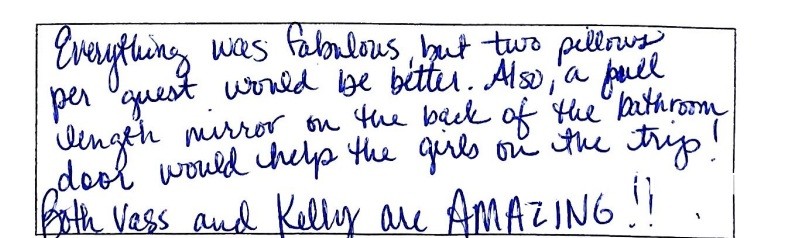 Everything was fabulous, but two pillows
per guest would be better. Also, a full
length mirror on the back of the bathroom
door would help the girls on the trip!
Both Vass and Kelly are AMAZING!!